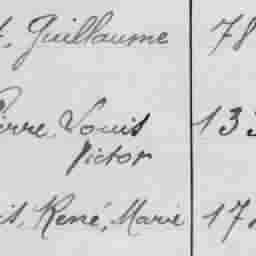 Guillaume 78
Pierre, Louis 133
Victor
René, Marie 17